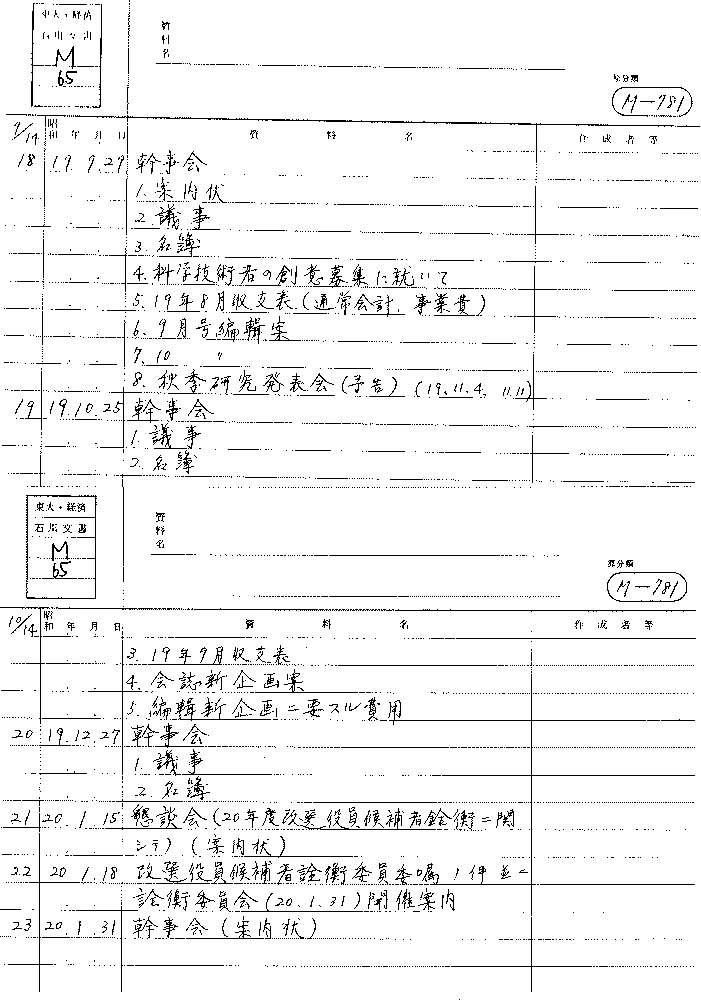 東大・経済
石川文書
M
65
資料名
原分類
M-781
9/14 昭和 年 月 日 資料名 作成者等
18 19.9.29 幹事会
1.案内状
2.議事
3.名簿
4.科学技術者の創意募集に就いて
5.19年8月収支表(通常会計、事業費)
6.9月号編輯案
7.10 〃
8.秋季研究発表会(予告)(19.11.4, 11.11)
19 19.10.25 幹事会
1.議事
2.名簿
東大・経済
石川文書
M
65
資料名
原分類
M-781
10/14 昭和 年 月 日 資料名 作成者等
3.19年9月収支表
4.会誌新企画案
5.編輯新企画ニ要スル費用
20 19.12.27 幹事会
1.議事
2.名簿
21 20.1.15 懇談会(20年度改選役員候補者銓衡ニ関
シテ)(案内状)
22 20.1.18 改選役員候補者詮衡委員委嘱ノ件並ニ
詮衡委員会(20.1.31)開催案内
23 20.1.31 幹事会(案内状)